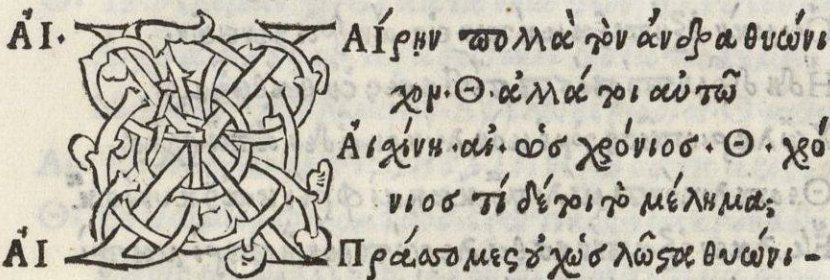 ΑΙ. ΧΑΙρην πολλὰ τὸν ἄνδρα θυώνι
χον. Θ. ἀλλά τοι αὐτῶ
Αἰσχίνη. αἰ. ὡς χρόνιος. Θ. χρό
νιος τί δέ τοι τὸ μέλημα;
ΑΙ Πράσσομες οὐχ ὡς λῶστα θυώνι-